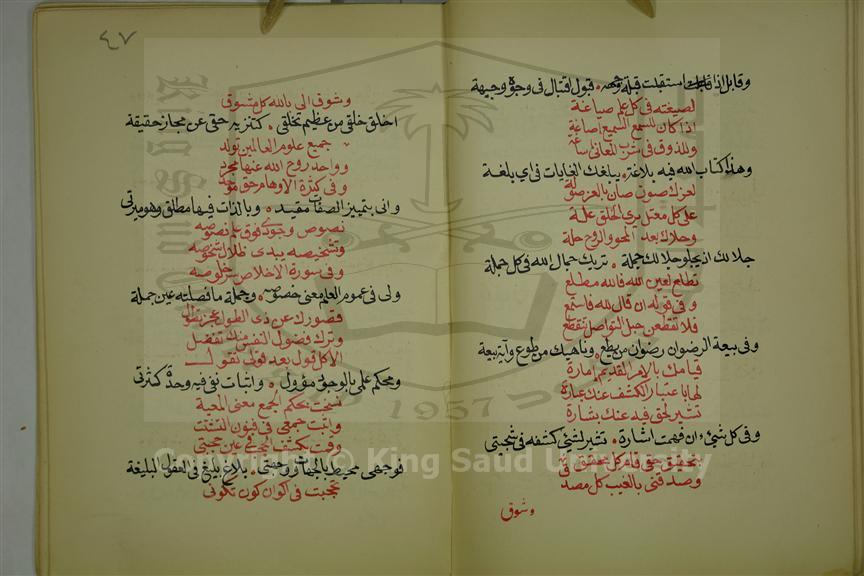 وقابل اذا استقلت قبلة وجهه ۰ قبول اقتبال في وجوه وجيهة
لصيغته في كل علم صياغة
اذا كان للسمع السميع اصاغة
وللذوق في شرب المعاني اساغة
وهذا كتاب الله فيه بلاغة ۰ يبلغك الغايات في اي بلغة
لعزك صون صان بالعز صولة
على كل معتل يرى الخلق علة
وحلاك بعد المحو والروح حلة
جلالك اذ يجلو جلالك جملة ۰ تريك جمال الله في كل جملة
تطلع لعين الله فالله مطلع
وفي قوله ان قال لله فاستمع
فلا تقطعن حبل التواصل تنقطع
وفي بيعة الرضوان رضوان من يطع ۰ وناهيك من طوع وآية بيعة
قيامك بالامر القديم امارة
لها باعتبار الكشف عنك عبارة
تشير لحق فيه عنك بشارة
وفي كل شيء ان فهمت اشارة ۰ تشير لشيء كشفه في شجيتي
بتحقيق حق قام كل محقق
وصدقني بالغيب كل مصدق
وشوق
٤٧
وشوق الى بالله كل متشوق
اخلق خلقي من عظيم تخلقي ۰ كتنزيه حق عن مجاز حقيقة
جميع علوم العالمين تولد
وواحد روح الله عنها مجرد
وفي كثرة الاوهام حق موحد
واني بتمييز الصفات مقيد ۰ وبالذات فيها مطلق وهو ميزتي
نصوص وجودي فوق علم نصوصه
وتشخيصه يبدي ظلال شخوصه
وفي سورة الاخلاص خلوصه
ولي في عموم العلم معنى خصوصه ۰ وجملة ما فصلته عين جملة
قصورك عن ذي الطول عجز
وترك فضول النفس منك تفضل
الا كل قول بعد قولك تقول
ومحكم علمي بالوجوه مؤول ۰ واثبات نفي فيه وحدة كثرتي
نسخت بحكم الجمع معنى المعية
واثبت جمعي في فنون التشتت
وقمت بكشف الحجب في عين حجبتي
فوجهي محيط بالجهات ووجهتي ۰ بلاغ بليغ في العقول البليغة
تحجبت في اكوان كون تكوني
Copyright © King Saud University
1957